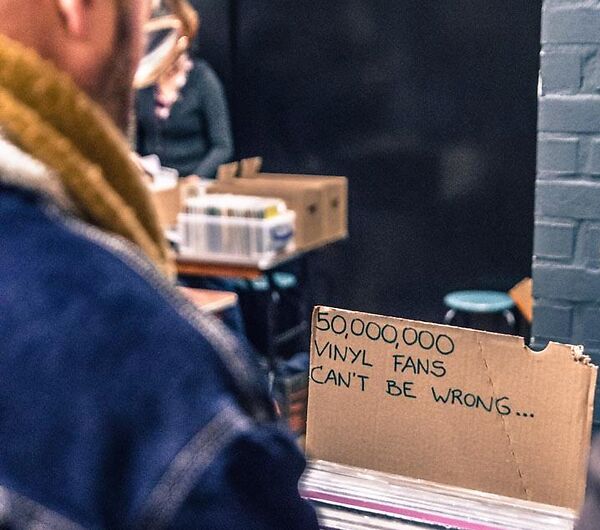 50,000,000
VINYL FANS
CAN'T BE WRONG...